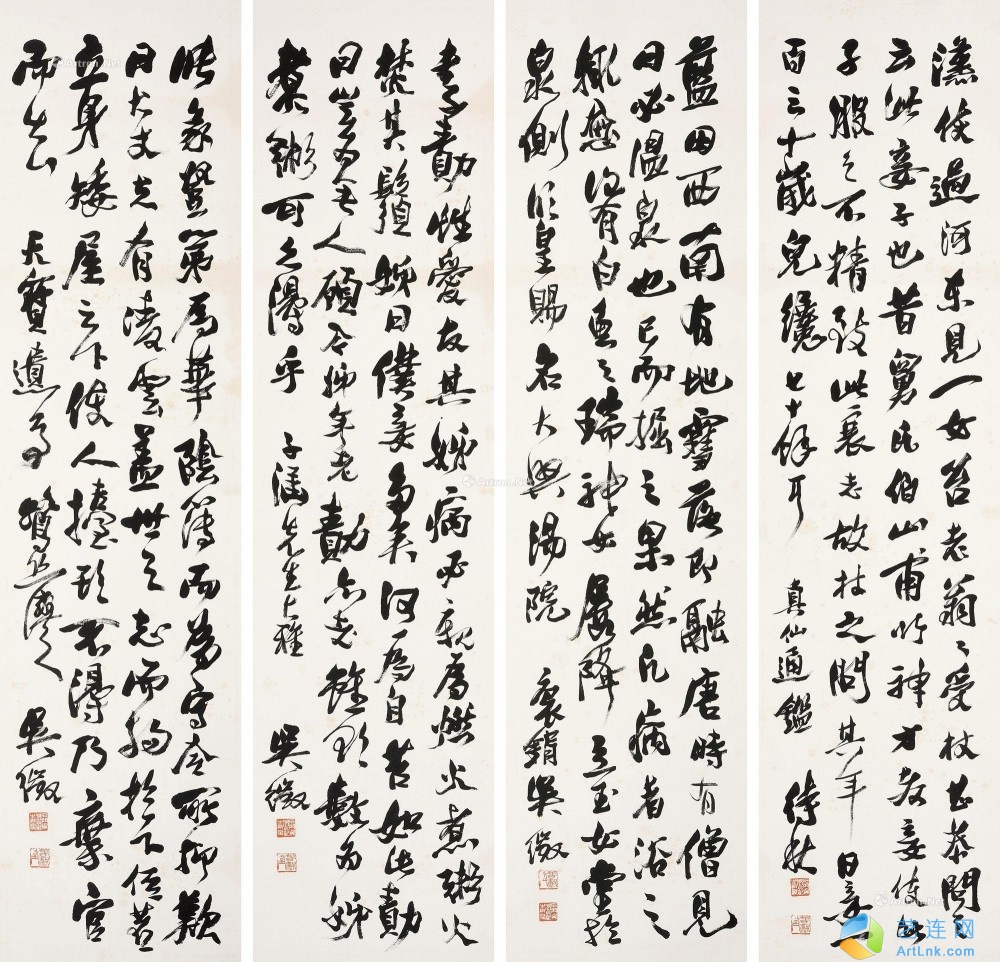 漢使過河東見一女笞老翁〻受杖甚恭問之
云此妾子也昔舅氏伯山甫以神方教妾使
子服之不精致此衰老故杖之問其年曰妾
百三十歲兒纔七十餘耳 真仙通鑑 待秋
藍田西南有地雪落即融唐時有僧見
曰必溫泉也已而掘之果然凡病者浴之
輒應復有白魚之瑞神女屢降立玉女堂於
泉側明皇賜名大興湯院 袌鋗吳徵
李勣性愛友其姊病必親爲燃火煮粥火
焚其鬚姊曰僕妾多矣何爲自苦如此勣
曰豈爲無人顧今姊年老勣亦老雖欲數爲姊
煮粥可得乎 子涵先生上雅 吳徵
張彖登第爲華陰簿而爲守令所抑歎
曰大丈夫有凌雲蓋世之志而拘於下位若
立身矮屋之下使人擡頭不得乃棄官
而去 天寶遺事 鷺絲灣人 吳徵
艺连网
ArtLnk.com